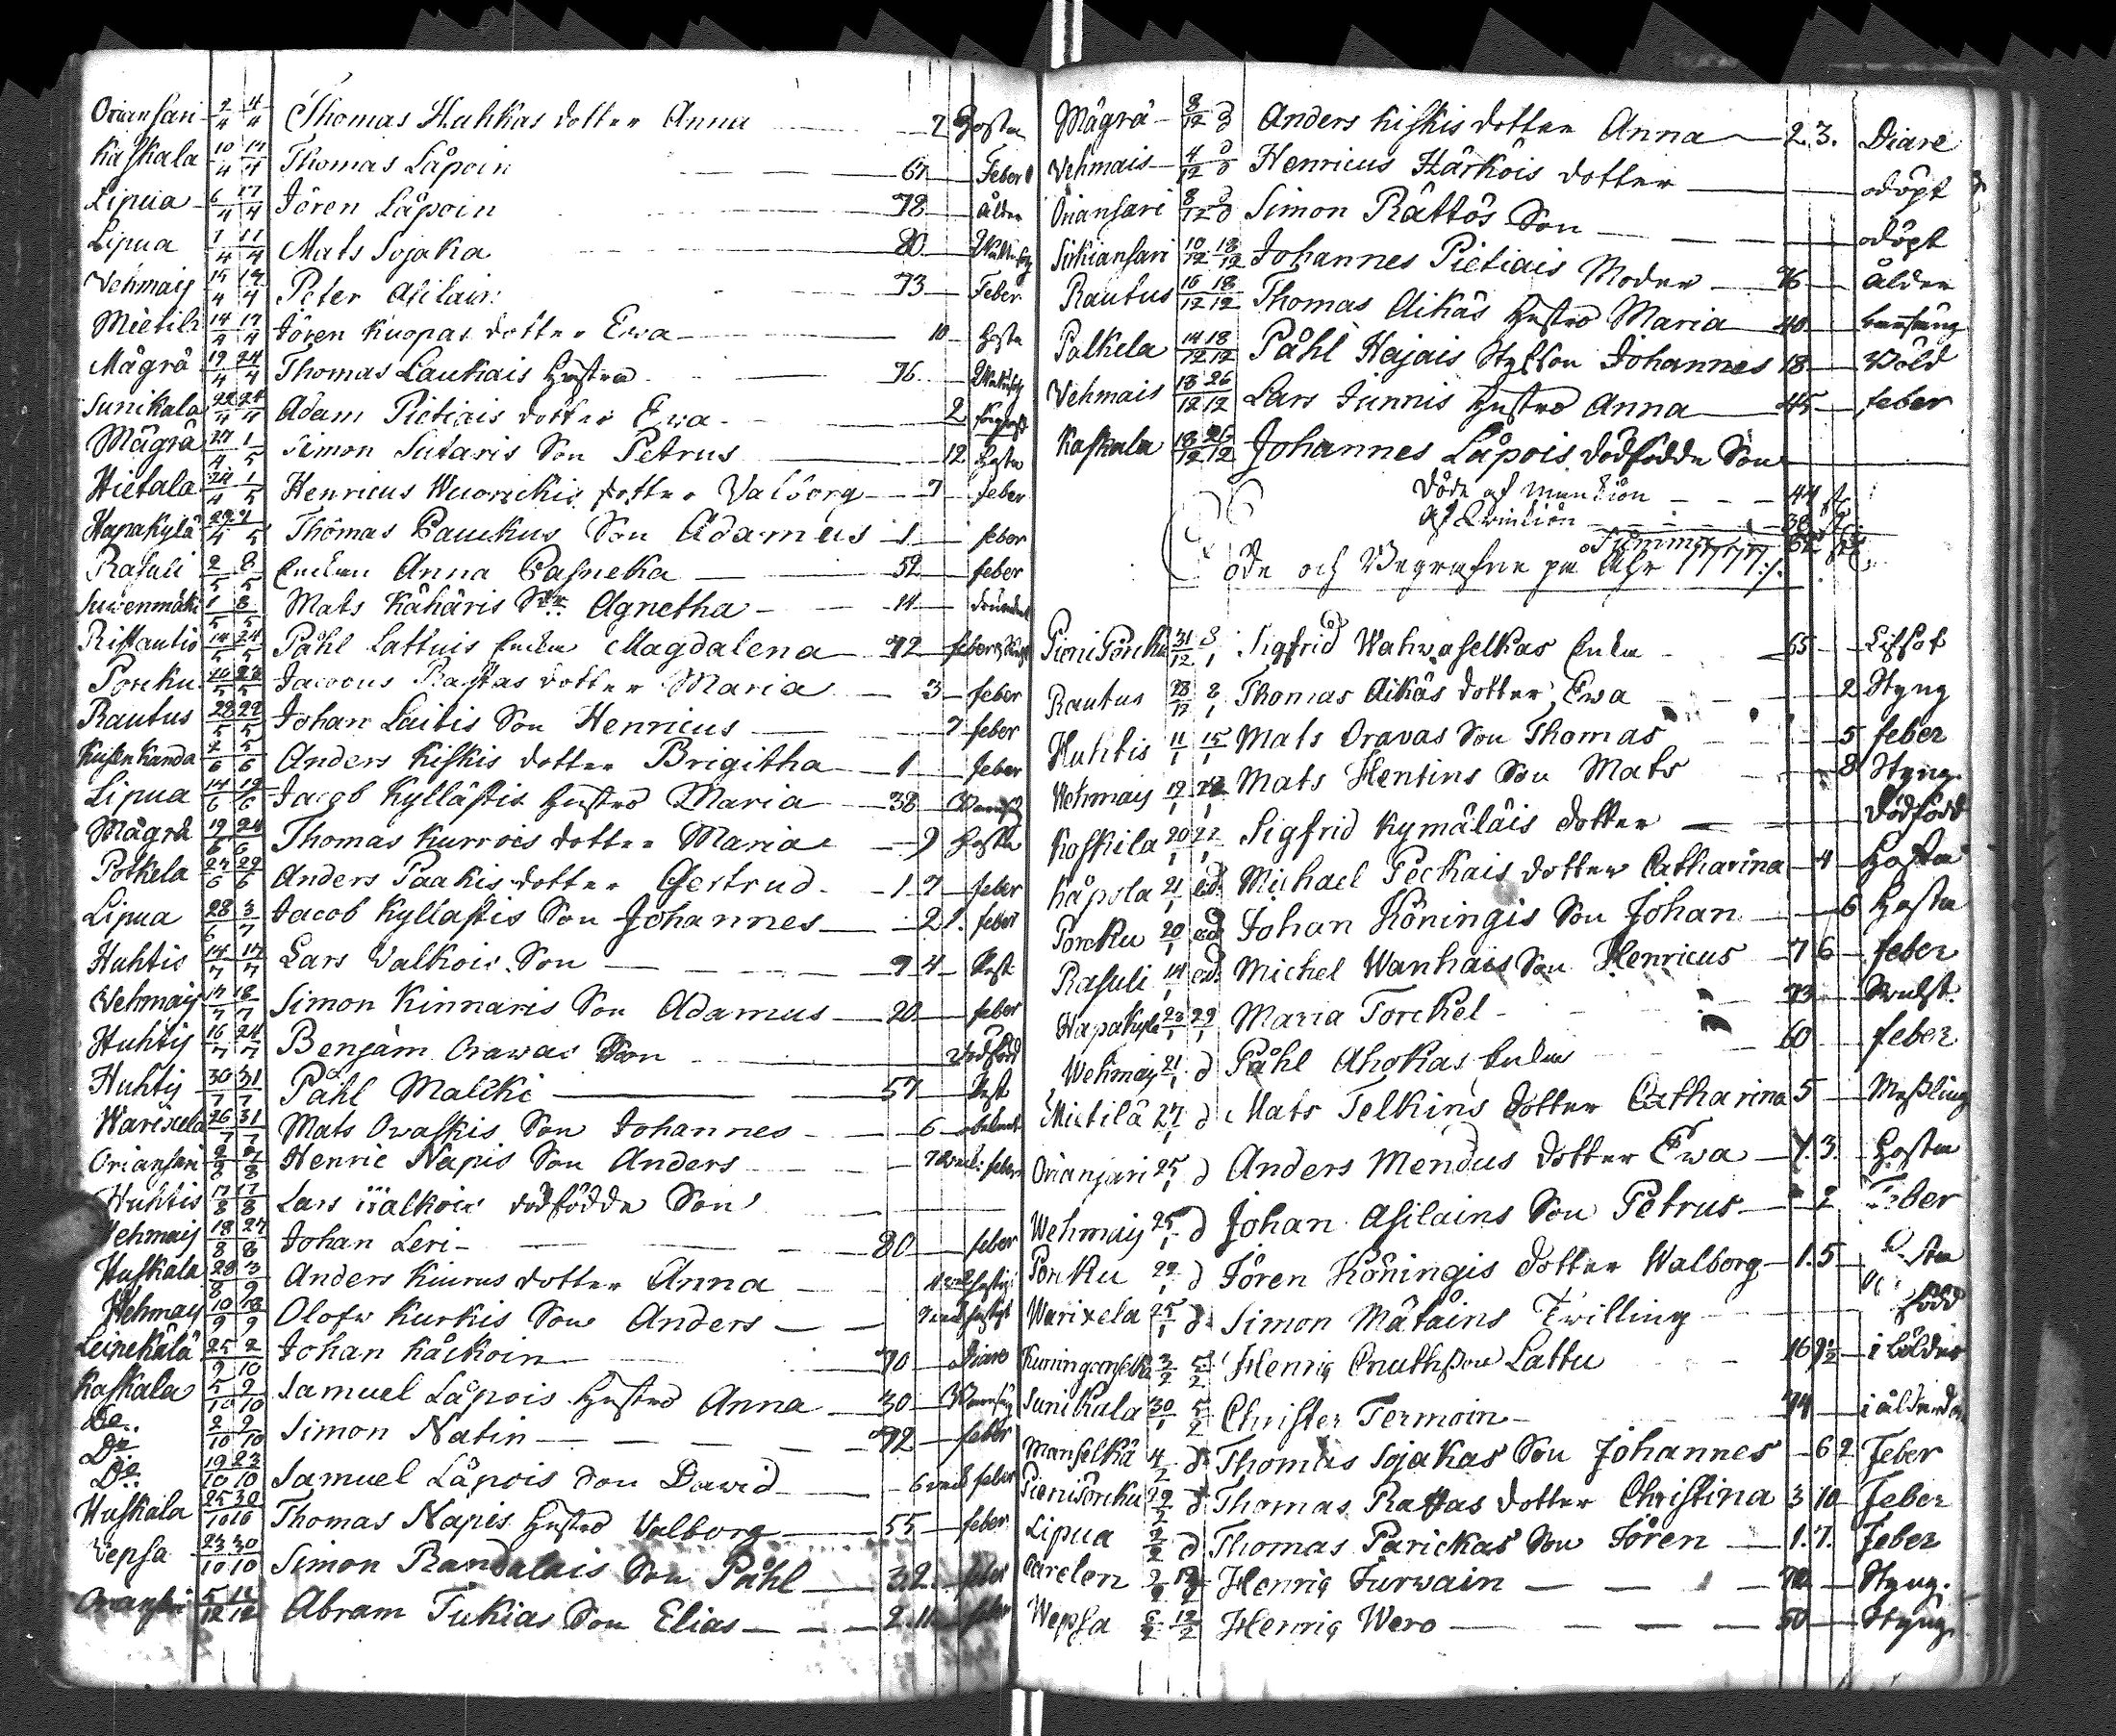 Oriansari 2/4 4/4 Thomas Huhkas dotter Anna 2 Hosta
Kaskala 10/4 17/4 Thomas Låpoin 67 Feber
Lipua 6/4 17/4 Jören Låpoin 78 ålder
Lipua 7/4 11/4 Mats Sojaka 80
Vehmais 15/4 17/4 Peter Asilain 73 Feber
Mietilä 14/4 17/4 Jören Kuopas dotter Ewa 10 Hosta
Mägrä 19/4 24/4 Thomas Laukais Hustru 76
Sunikala 22/4 24/4 Adam Pietiais dotter Ewa 2
Mägrä 27/4 1/5 Simon Sutaris Son Petrus 12 Hosta
Hietala 24/4 1/5 Henricus Wuorickis dotter Valborg 7 feber
Hapakylä 29/4 1/5 Thomas Pauckus Son Adamus 1 feber
Rasuli 2/5 8/5 Enckan Anna Pasneka 52 feber
Suwenmäki 1/5 8/5 Mats Kähäris Agnetha 14
Ristautio 14/5 24/5 Påhl Lattuis Enka Magdalena 72 feber
Porcku 20/5 22/5 Jacobus Rastas dotter Maria 3 feber
Rautus 28/5 29/5 Johan Laitis Son Henricus 7 feber
2/6 5/6 Anders Kiskis dotter Brigitha 1 feber
Lipua 14/6 19/6 Jacob Kyllästis Hustro Maria 38
Mägrä 19/6 24/6 Thomas Kurrois dotter Maria 9 Hosta
Potkela 27/6 29/6 Anders Paakis dotter Gertrud 1 7 feber
Lipua 28/6 3/7 Jacob Kyllästis Son Johannes 2 1. feber
Huhtis 14/7 17/7 Lars Valkois Son 9 4
Vehmais 17/7 18/7 Simon Kinnaris Son Adamus 20 feber
Huhtis 16/7 24/7 Benjam Orawas Son dödfödd
Huhtis 30/7 31/7 Påhl Malcki 57
Warixela 26/7 31/7 Mats Owaskis Son Johannes 6
Oriansari 2/8 7/8 Henric Napis Son Anders 7 feber
Huhtis 17/8 17/8 Lars Walkois dödfödde Son
Vehmais 18/8 24/8 Johan Leri 80 feber
Huskala 28/8 3/9 Anders Kiurus dotter Anna
Vehmais 10/9 Olofs Kurkis Son Anders
Leinekälä 25/9 2/10 Johan Kåckoin 70 Diare
Kaskala 5/10 9/10 Samuel Låpois Hustro Anna 30
Do. 2/10 9/10 Simon Natin 72 feber
Do. 19/10 23/10 Samuel Låpois Son David 6 feber
Huskala 25/10 30/10 Thomas Napis Hustro Valborg 55 feber
Vepsa 23/10 30/10 Simon Randalais Son Påhl 3 2 feber
Oriansari 5/12 11/12 Abram Tukias Son Elias 2 11 feber
Mägrä 8/12 d Anders Kiskis dotter Anna 2. 3. Diare
Vehmais 4/12 d Henricus Härköis dotter odöpt
Oriansari 8/12 d Simon Rättös Son odöpt
Sirkiansari 10/12 18/12 Johannes Pietiais Moder 76 ålder
Rautus 16/12 18/12 Thomas Aikäs Hustro Maria 40 barnsäng
Palkela 14/12 18/12 Påhl Hajais Styfson Johannes 18 Wåld
Vehmais 18/12 26/12 Lars Junnis Hustro Anna 45 feber
Kaskala 18/12 26/12 Johannes Låpois dödfödde Son
Döde af Mankiön 44 st
af Qvinkiön 38 st
Summa 82 st
Döde och Begrafne på Åhr 1777.
Pieni Porcku 31/12 8/1 Sigfrid Wahwaselkas Enka 65 Lefsot
Rautus 28/12 8/1 Thomas Aikäs dotter Ewa 2 Styng
Huhtis 11/1 15/1 Mats Oravas Son Thomas 5 feber
Wehmais 19/1 22/1 Mats Hentins Son Mats 8 Styng.
Koskila 20/1 22/1 Sigfrid Kymäläis dotter dödfödd
Kåpsla 21/1 ed. Michael Peckais dotter Catharina 4 Hosta
Porcku 20/1 ed Johan Köningis Son Johan 6 Hosta
Rasuli 14/1 ed. Michel Wanhais Son Henricus 7 6 feber
Hapakylä 23/1 29/1 Maria Torckel 73 Swulst.
Wehmais 21/1 d Påhl Ahokas Enka 60 feber
Mietilä 27/1 d Mats Telkins dotter Catharina 5 Meßling
Oriansari 25/1 d Anders Mendus dotter Ewa 7. 3. Hosta
Wehmais 25/1 d Johan Asilains Son Petrus 2 Feber
Porcku 29/1 d Jören Köningis dotter Walborg 1. 5
Warixela 25/1 d Simon Mätäins Twilling född
3/2 5/2 Henriq Cnuthson Lattu
Sunikala 30/1 5/2 Christer Termoin 74
Manselkä 4/2 d Thomas Sojakas Son Johannes 6 2 Feber
Pieni Porcku d Thomas Rastas dotter Christina 3 10 Feber
Lipua 2/2 d Thomas Parickas Son Jören 1. 7. Feber
Carelen 2/2 12/2 Henriq Turwain 72 Styng.
Wepsa 12/2 Henriq Wero 50 Styng